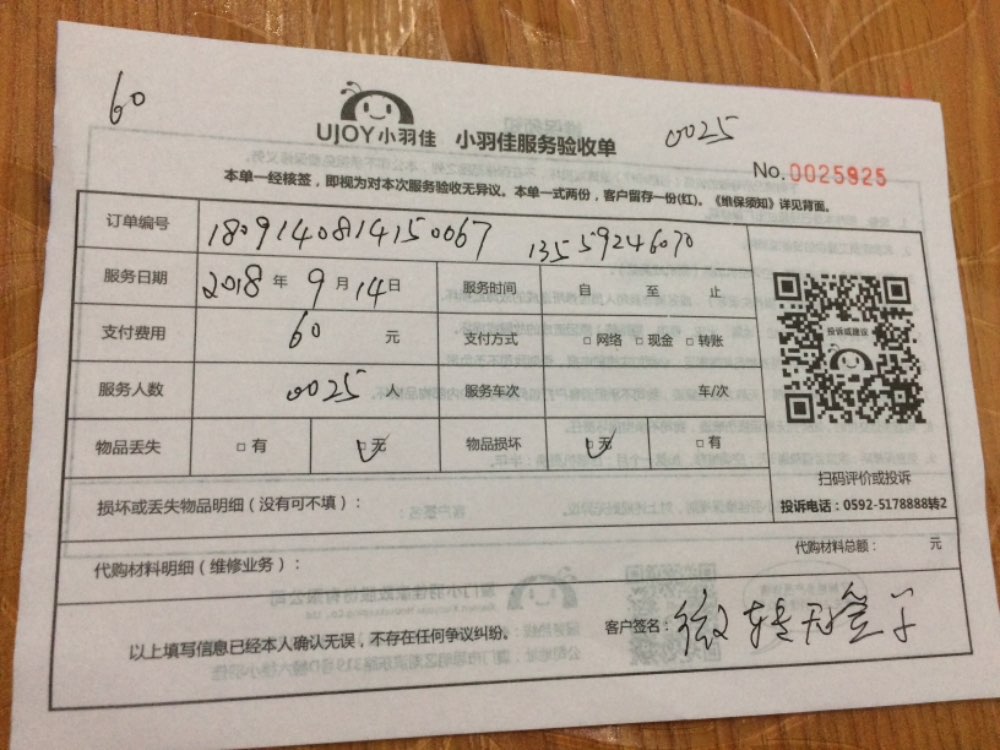 60
UJOY小羽佳 小羽佳服务验收单
0025
No.0025925
本单一经核签，即视为对本次服务验收无异议。本单一式两份，客户留存一份(红)。《维保须知》详见背面。
订单编号 1809140814150067 13559246070
服务日期 2018 年 9 月 14 日 服务时间 自 至 止
支付费用 60 元 支付方式 □ 网络 □ 现金 □ 转账
服务人数 0025 人 服务车次 车/次
物品丢失 □ 有 □ 无 物品损坏 □ 无 □ 有
投诉或建议
扫码评价或投诉
投诉电话：0592-5178888转2
损坏或丢失物品明细（没有可不填）：
代购材料明细（维修业务）： 代购材料总额： 元
以上填写信息已经本人确认无误，不存在任何争议纠纷。 客户签名：微转无签字